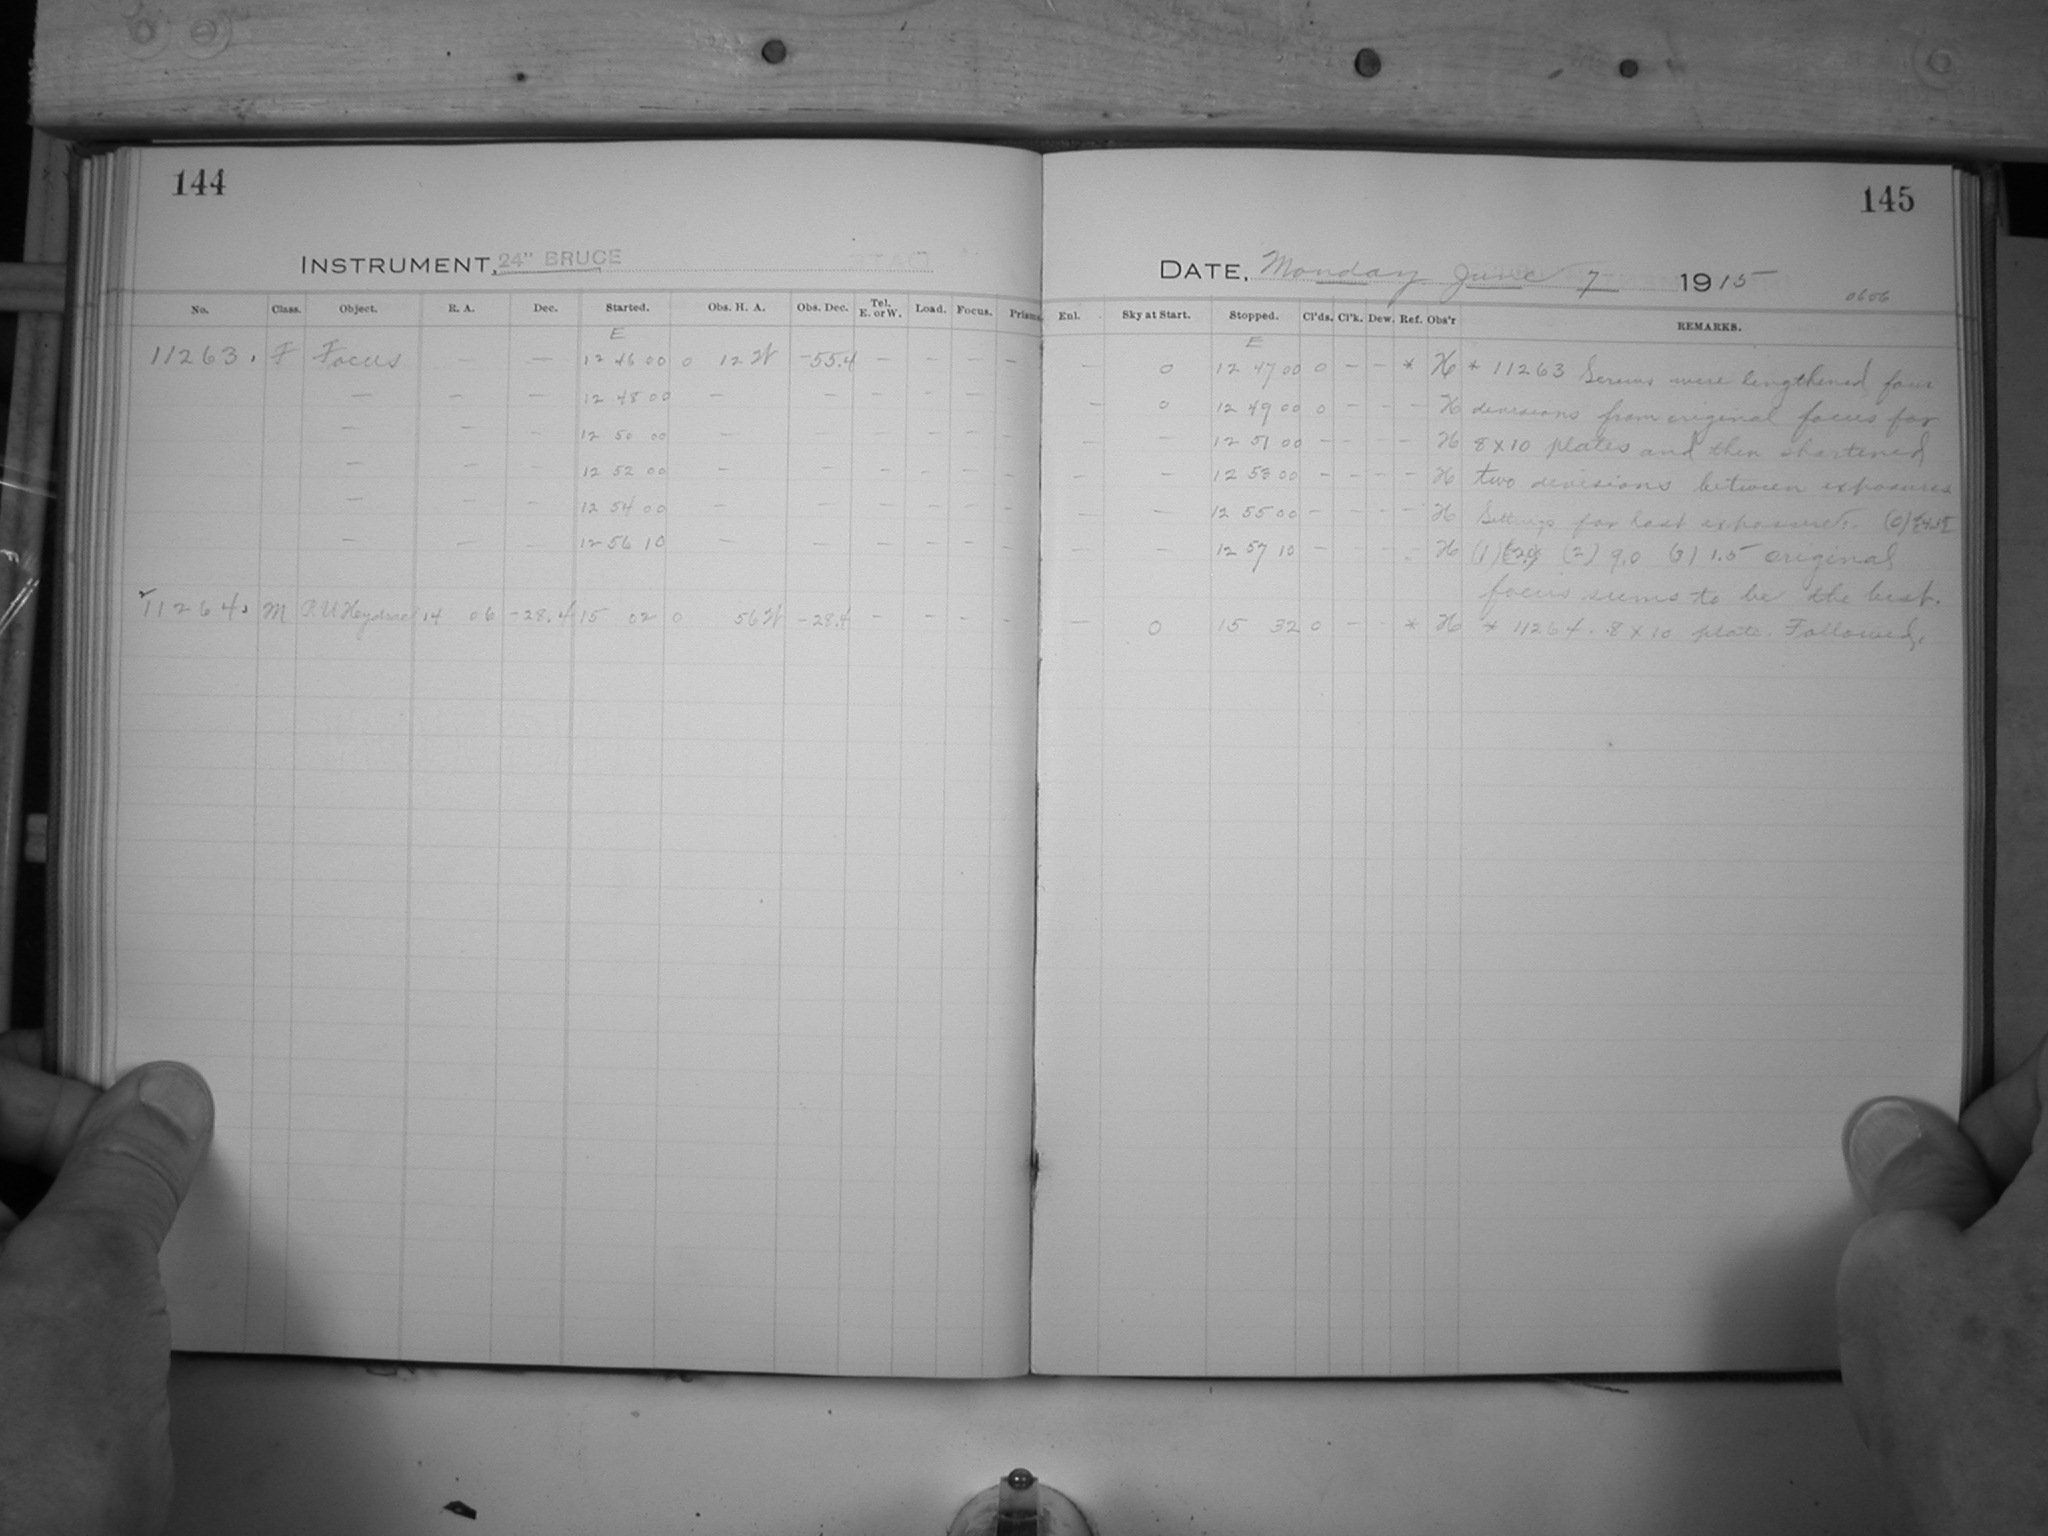 144
145
INSTRUMENT, 24" BRUCE
DATE, Monday June 7 1915
0606
No. Class. Object. R. A. Dec. Started. Obs. H. A. Obs. Dec. Tel. E. or W. Load. Focus. Prisms
Enl. Sky at Start. Stopped. Cl'ds. Cl'k. Dew. Ref. Obs'r REMARKS.
E
E
11263. F Focus — — 12 46 00 0 12 W -55.4 — — — —
— 0 12 47 00 0 — — * H * 11263 Screws were lengthened four
— — — 12 48 00 — — — — — —
— 0 12 49 00 0 — — — H divisions from original focus for
— — — 12 50 00 — — — — — —
— — 12 51 00 — — — — H 8 x 10 plates and then shortened
— — — 12 52 00 — — — — — —
— — 12 53 00 — — — — H two divisions between exposures
— — — 12 54 00 — — — — — —
— — 12 55 00 — — — — H Settings for last exposure:- (0)
— — — 12 56 10 — — — — — —
— — 12 57 10 — — — — H (1) (2) 9.0 (3) 1.5 original
focus seems to be the best.
11264. M 14 06 -28.4 15 02 0 56 W -28.4 — — — —
— 0 15 32 0 — — * H * 11264. 8 x 10 plate. Followed.